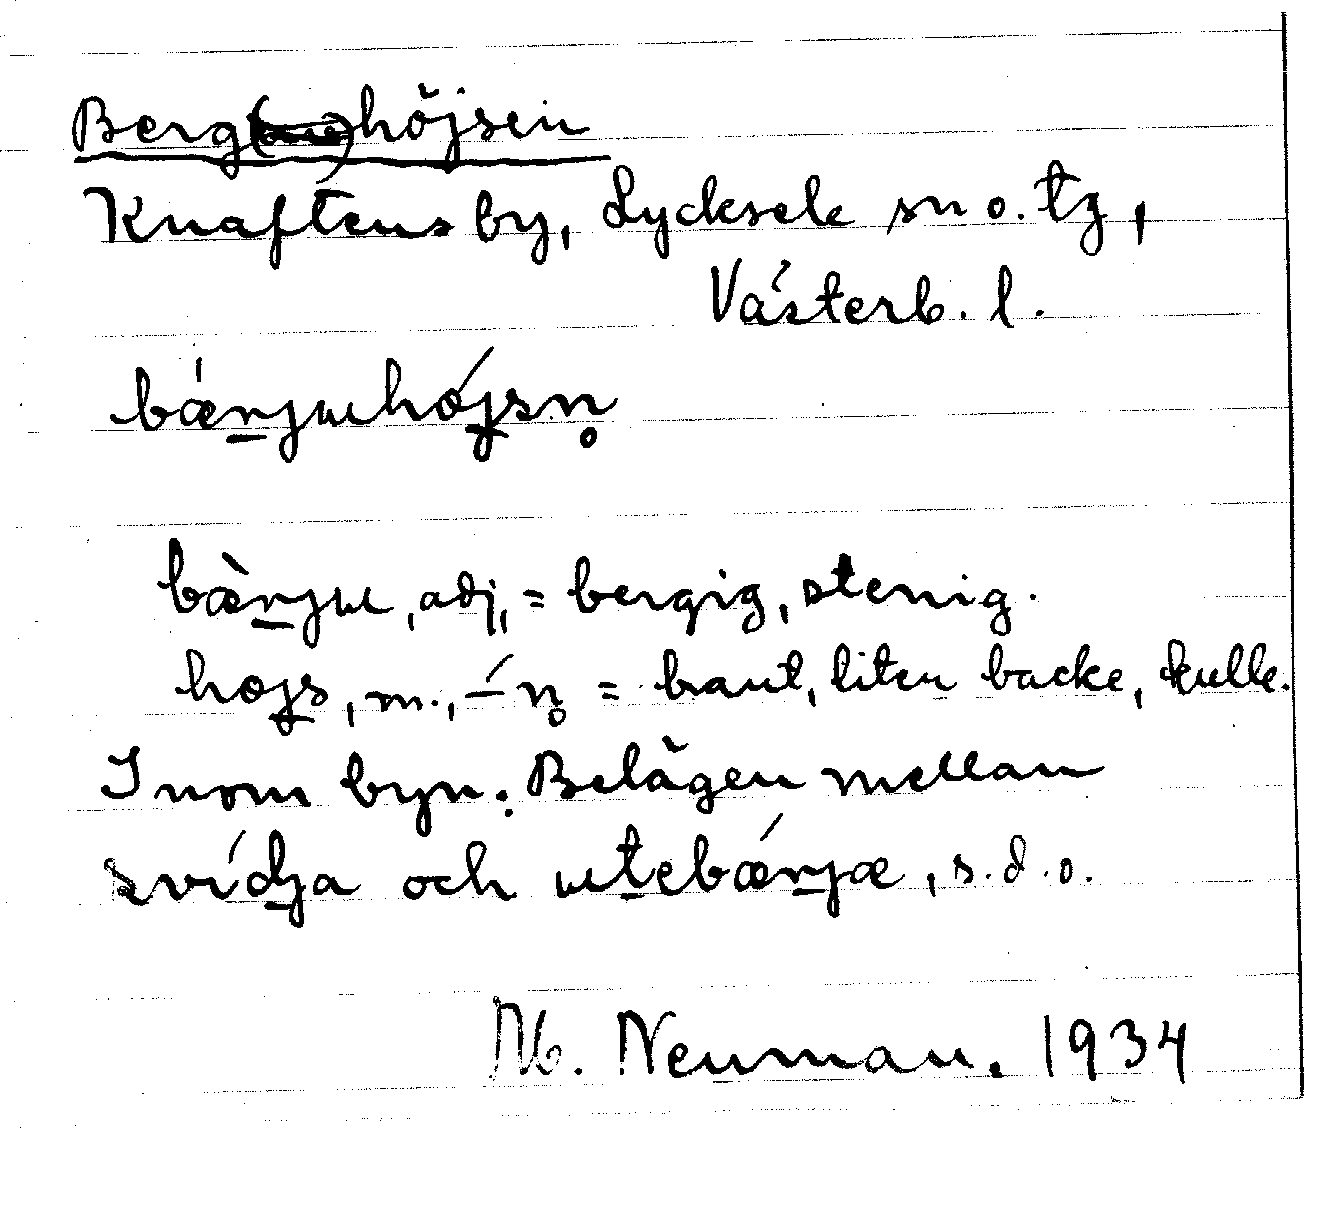 Berghöjsen
Knaftens by, Lycksele sn o. tg,
Västerb. l.
bæ̀njɯhǿjsn̥
bæ̀njɯ, adj, = bergig, stenig.
højs, m., –́ n̥ = brant, liten backe, kulle.
Inom byn. Belägen mellan
svídja och ɯtebǽnjæ, s. d. o.
M. Neuman. 1934